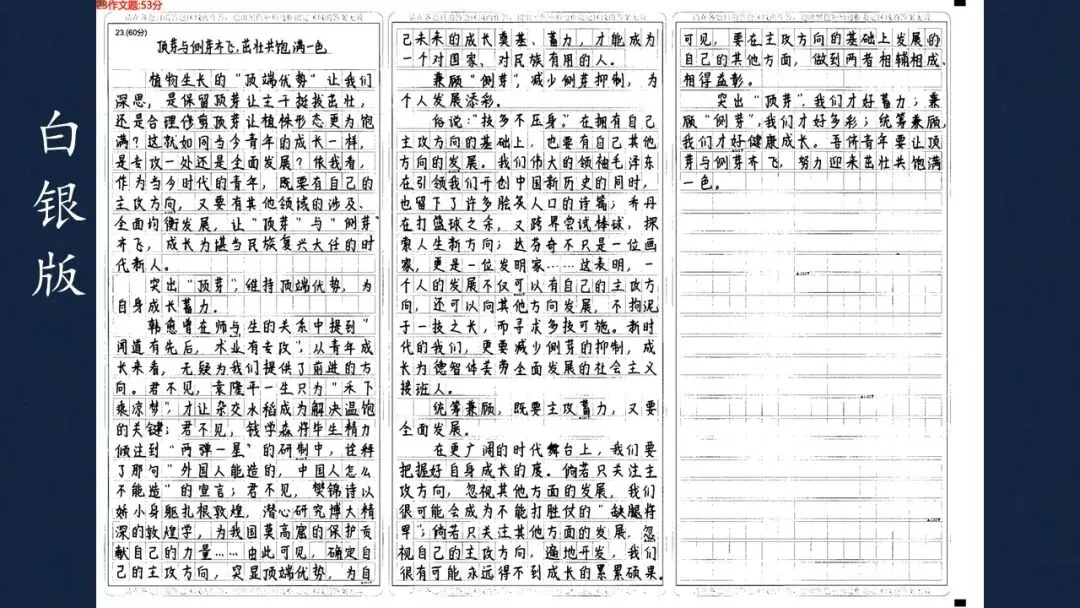 23作文题:53分
白银版
23.(60分)
顶芽与侧芽齐飞,茁壮共饱满一色
植物生长的“顶端优势”让我们
深思,是保留顶芽让主干挺拔茁壮,
还是合理修剪顶芽让植株形态更为饱
满?这就如同当今青年的成长一样,
是专攻一处还是全面发展?依我看,
作为当今时代的青年,既要有自己的
主攻方向,又要有其他领域的涉及、
全面均衡发展,让“顶芽”与“侧芽”
齐飞,成长为堪当民族复兴大任的时
代新人。
突出“顶芽”,维持顶端优势,为
自身成长蓄力。
韩愈曾在师与生的关系中提到“
闻道有先后,术业有专攻”,从青年成
长来看,无疑为我们提供了前进的方
向。君不见,袁隆平一生只为“禾下
乘凉梦”,才让杂交水稻成为解决温饱
的关键;君不见,钱学森将毕生精力
倾注到“两弹一星”的研制中,诠释
了那句“外国人能造的,中国人怎么
不能造”的宣言;君不见,樊锦诗以
娇小身躯扎根敦煌,潜心研究博大精
深的敦煌学,为我国莫高窟的保护贡
献自己的力量……由此可见,确定自
己的主攻方向,突显顶端优势,为自
己未来的成长奠基、蓄力,才能成为
一个对国家、对民族有用的人。
兼顾“侧芽”,减少侧芽抑制,为
个人发展添彩。
俗说:“技多不压身。”在拥有自己
主攻方向的基础上,也要有自己其他
方向的发展。我们伟大的领袖毛泽东
在引领我们开创中国新历史的同时,
也留下了许多脍炙人口的诗篇;乔丹
在打篮球之余,又跨界尝试棒球,探
索人生新方向;达芬奇不只是一位画
家,更是一位发明家……这表明,一
个人的发展不仅可以有自己的主攻方
向,还可以向其他方向发展,不拘泥
于一技之长,而寻求多技可施。新时
代的我们,更要减少侧芽的抑制,成
长为德智体美劳全面发展的社会主义
接班人。
统筹兼顾,既要主攻蓄力,又要
全面发展。
在更广阔的时代舞台上,我们要
把握好自身成长的度。倘若只关注主
攻方向,忽视其他方面的发展,我们
很可能会成为不能打胜仗的“缺腿将
军”;倘若只关注其他方面的发展,忽
视自己的主攻方向,遍地开发,我们
很有可能永远得不到成长的累累硕果。
可见,要在主攻方向的基础上发展的
自己的其他方面,做到两者相辅相成、
相得益彰。
突出“顶芽”,我们才好蓄力;兼
顾“侧芽”,我们才好多彩;统筹兼顾,
我们才好健康成长。吾侪青年要让顶
芽与侧芽齐飞,努力迎来茁壮共饱满
一色。